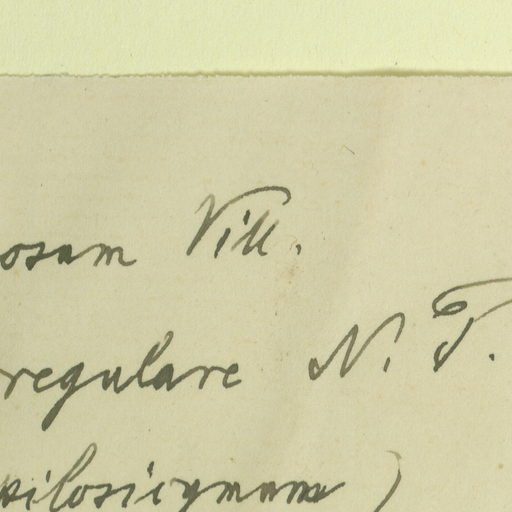 osum Vill.
rregulare N. P.
pilosicymum )